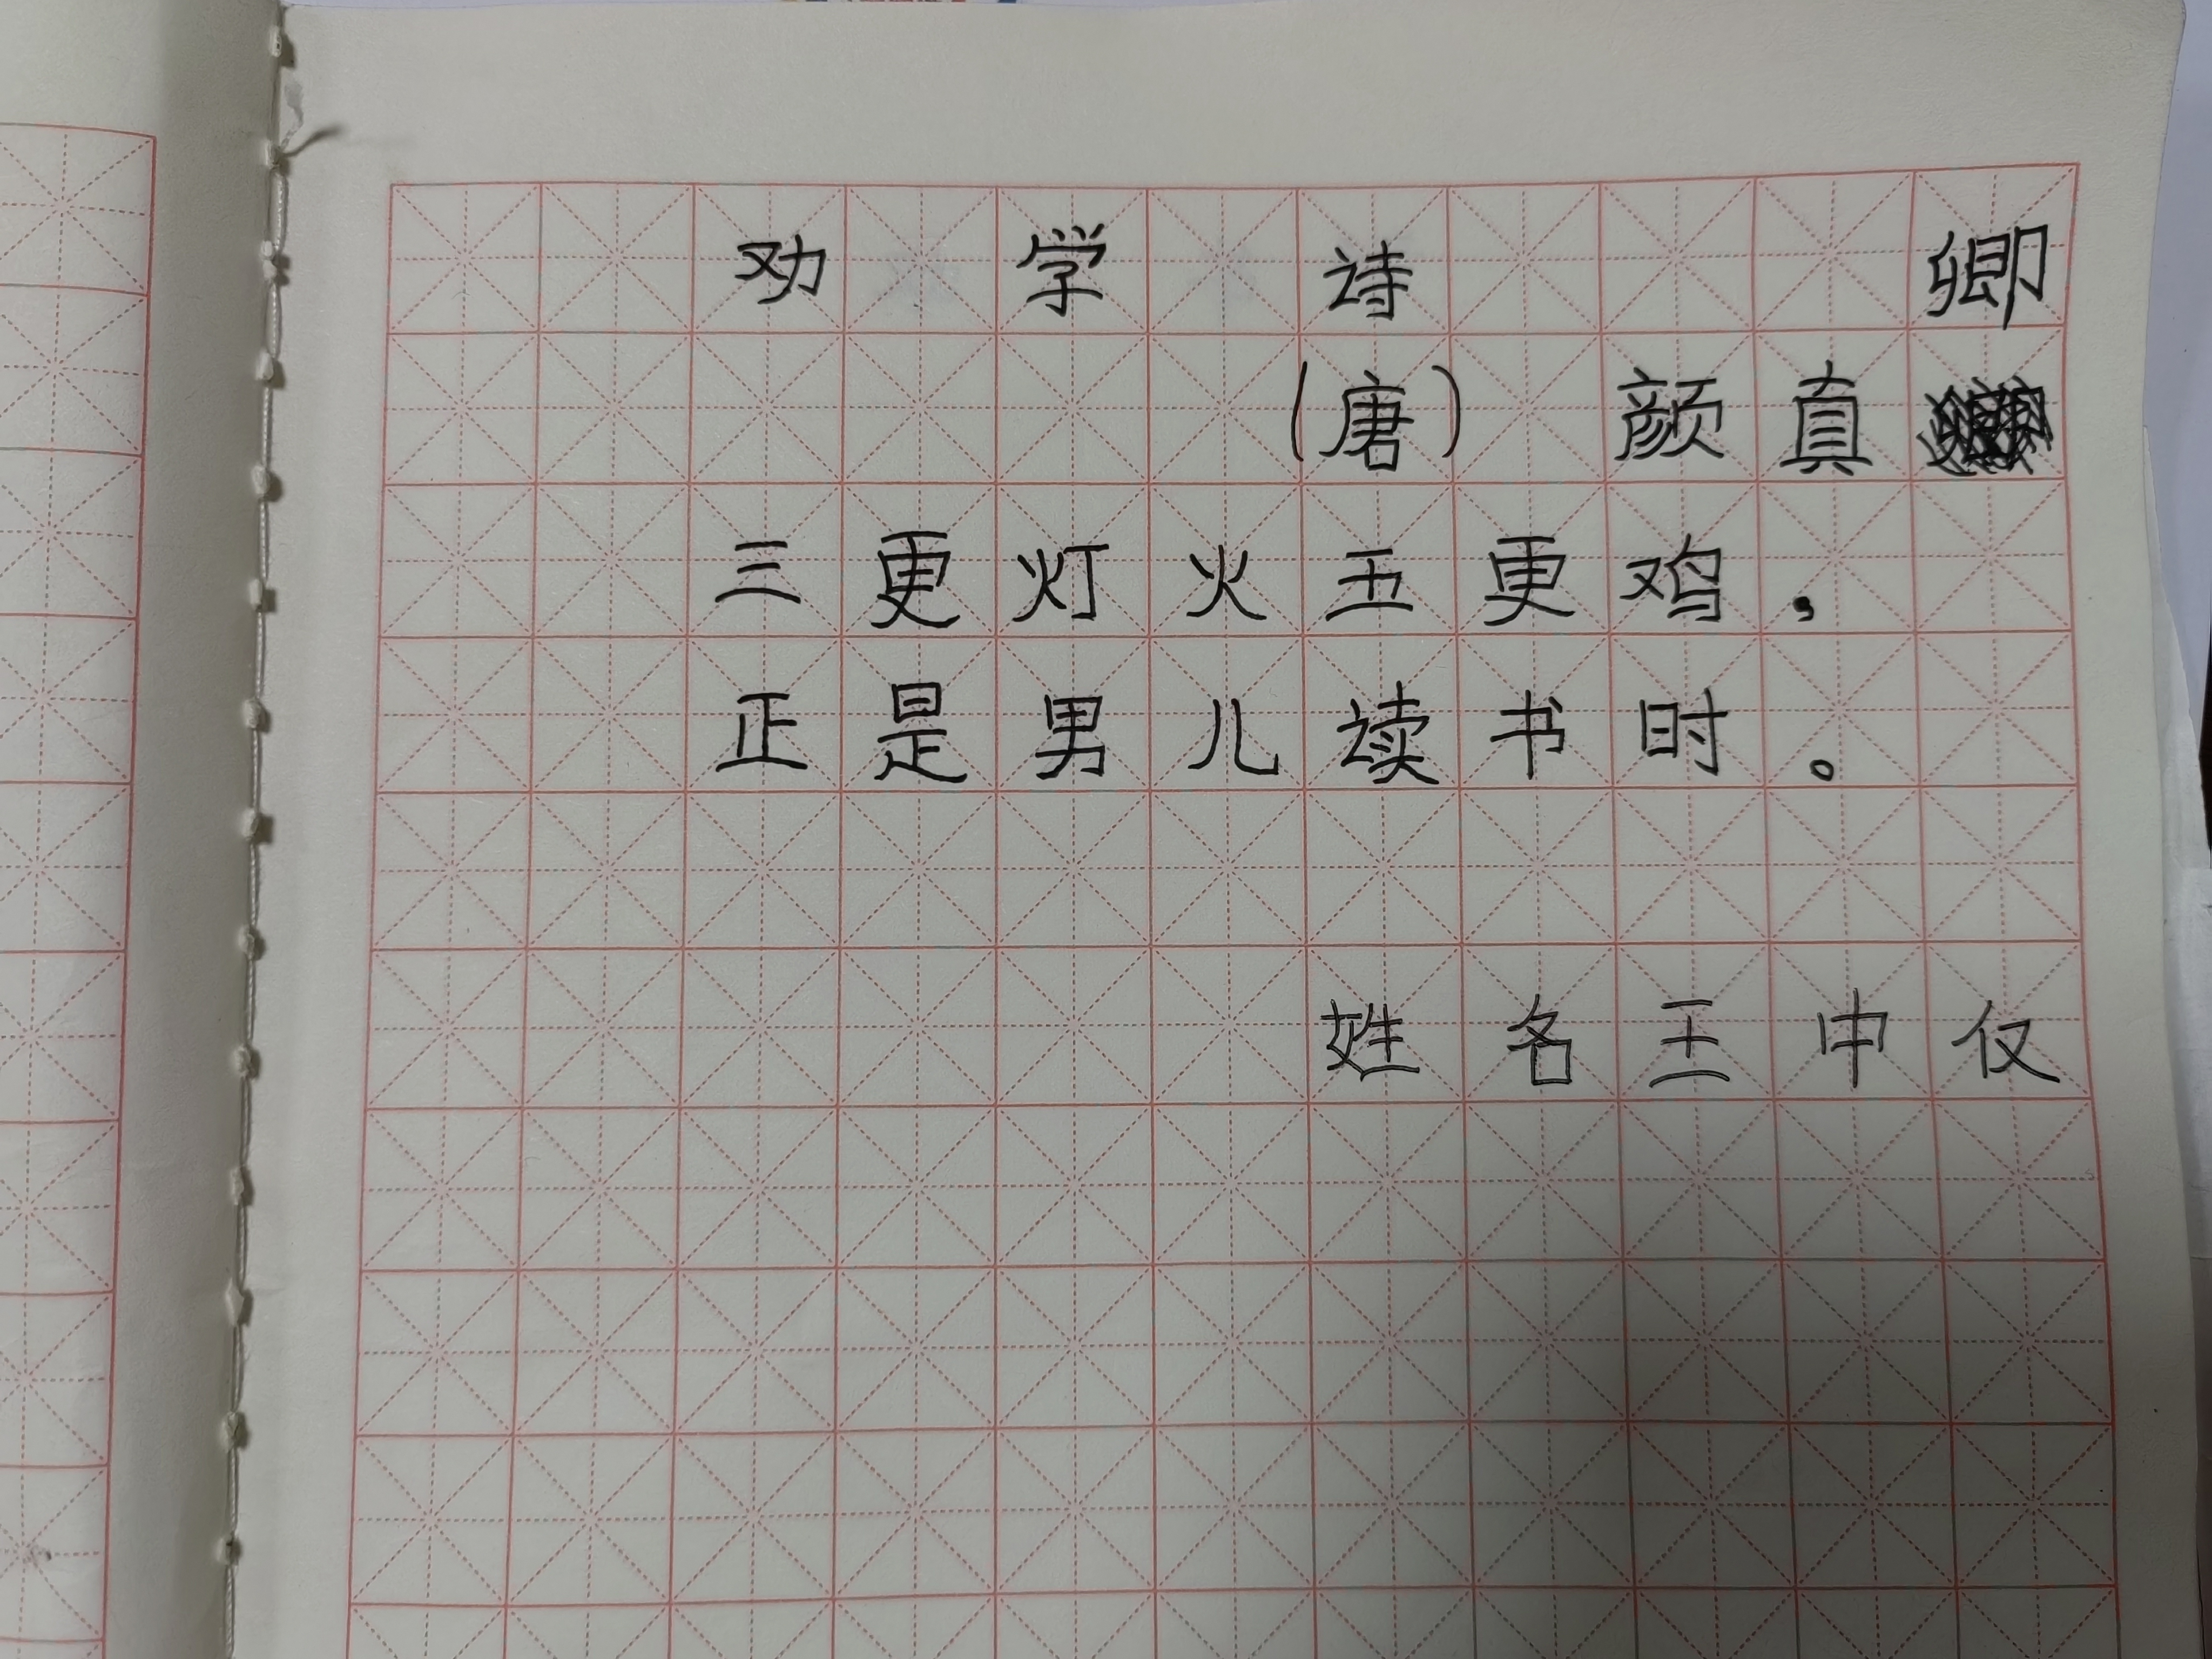 劝学诗 卿
（唐） 颜真
三更灯火五更鸡，
正是男儿读书时。
姓名王中仅